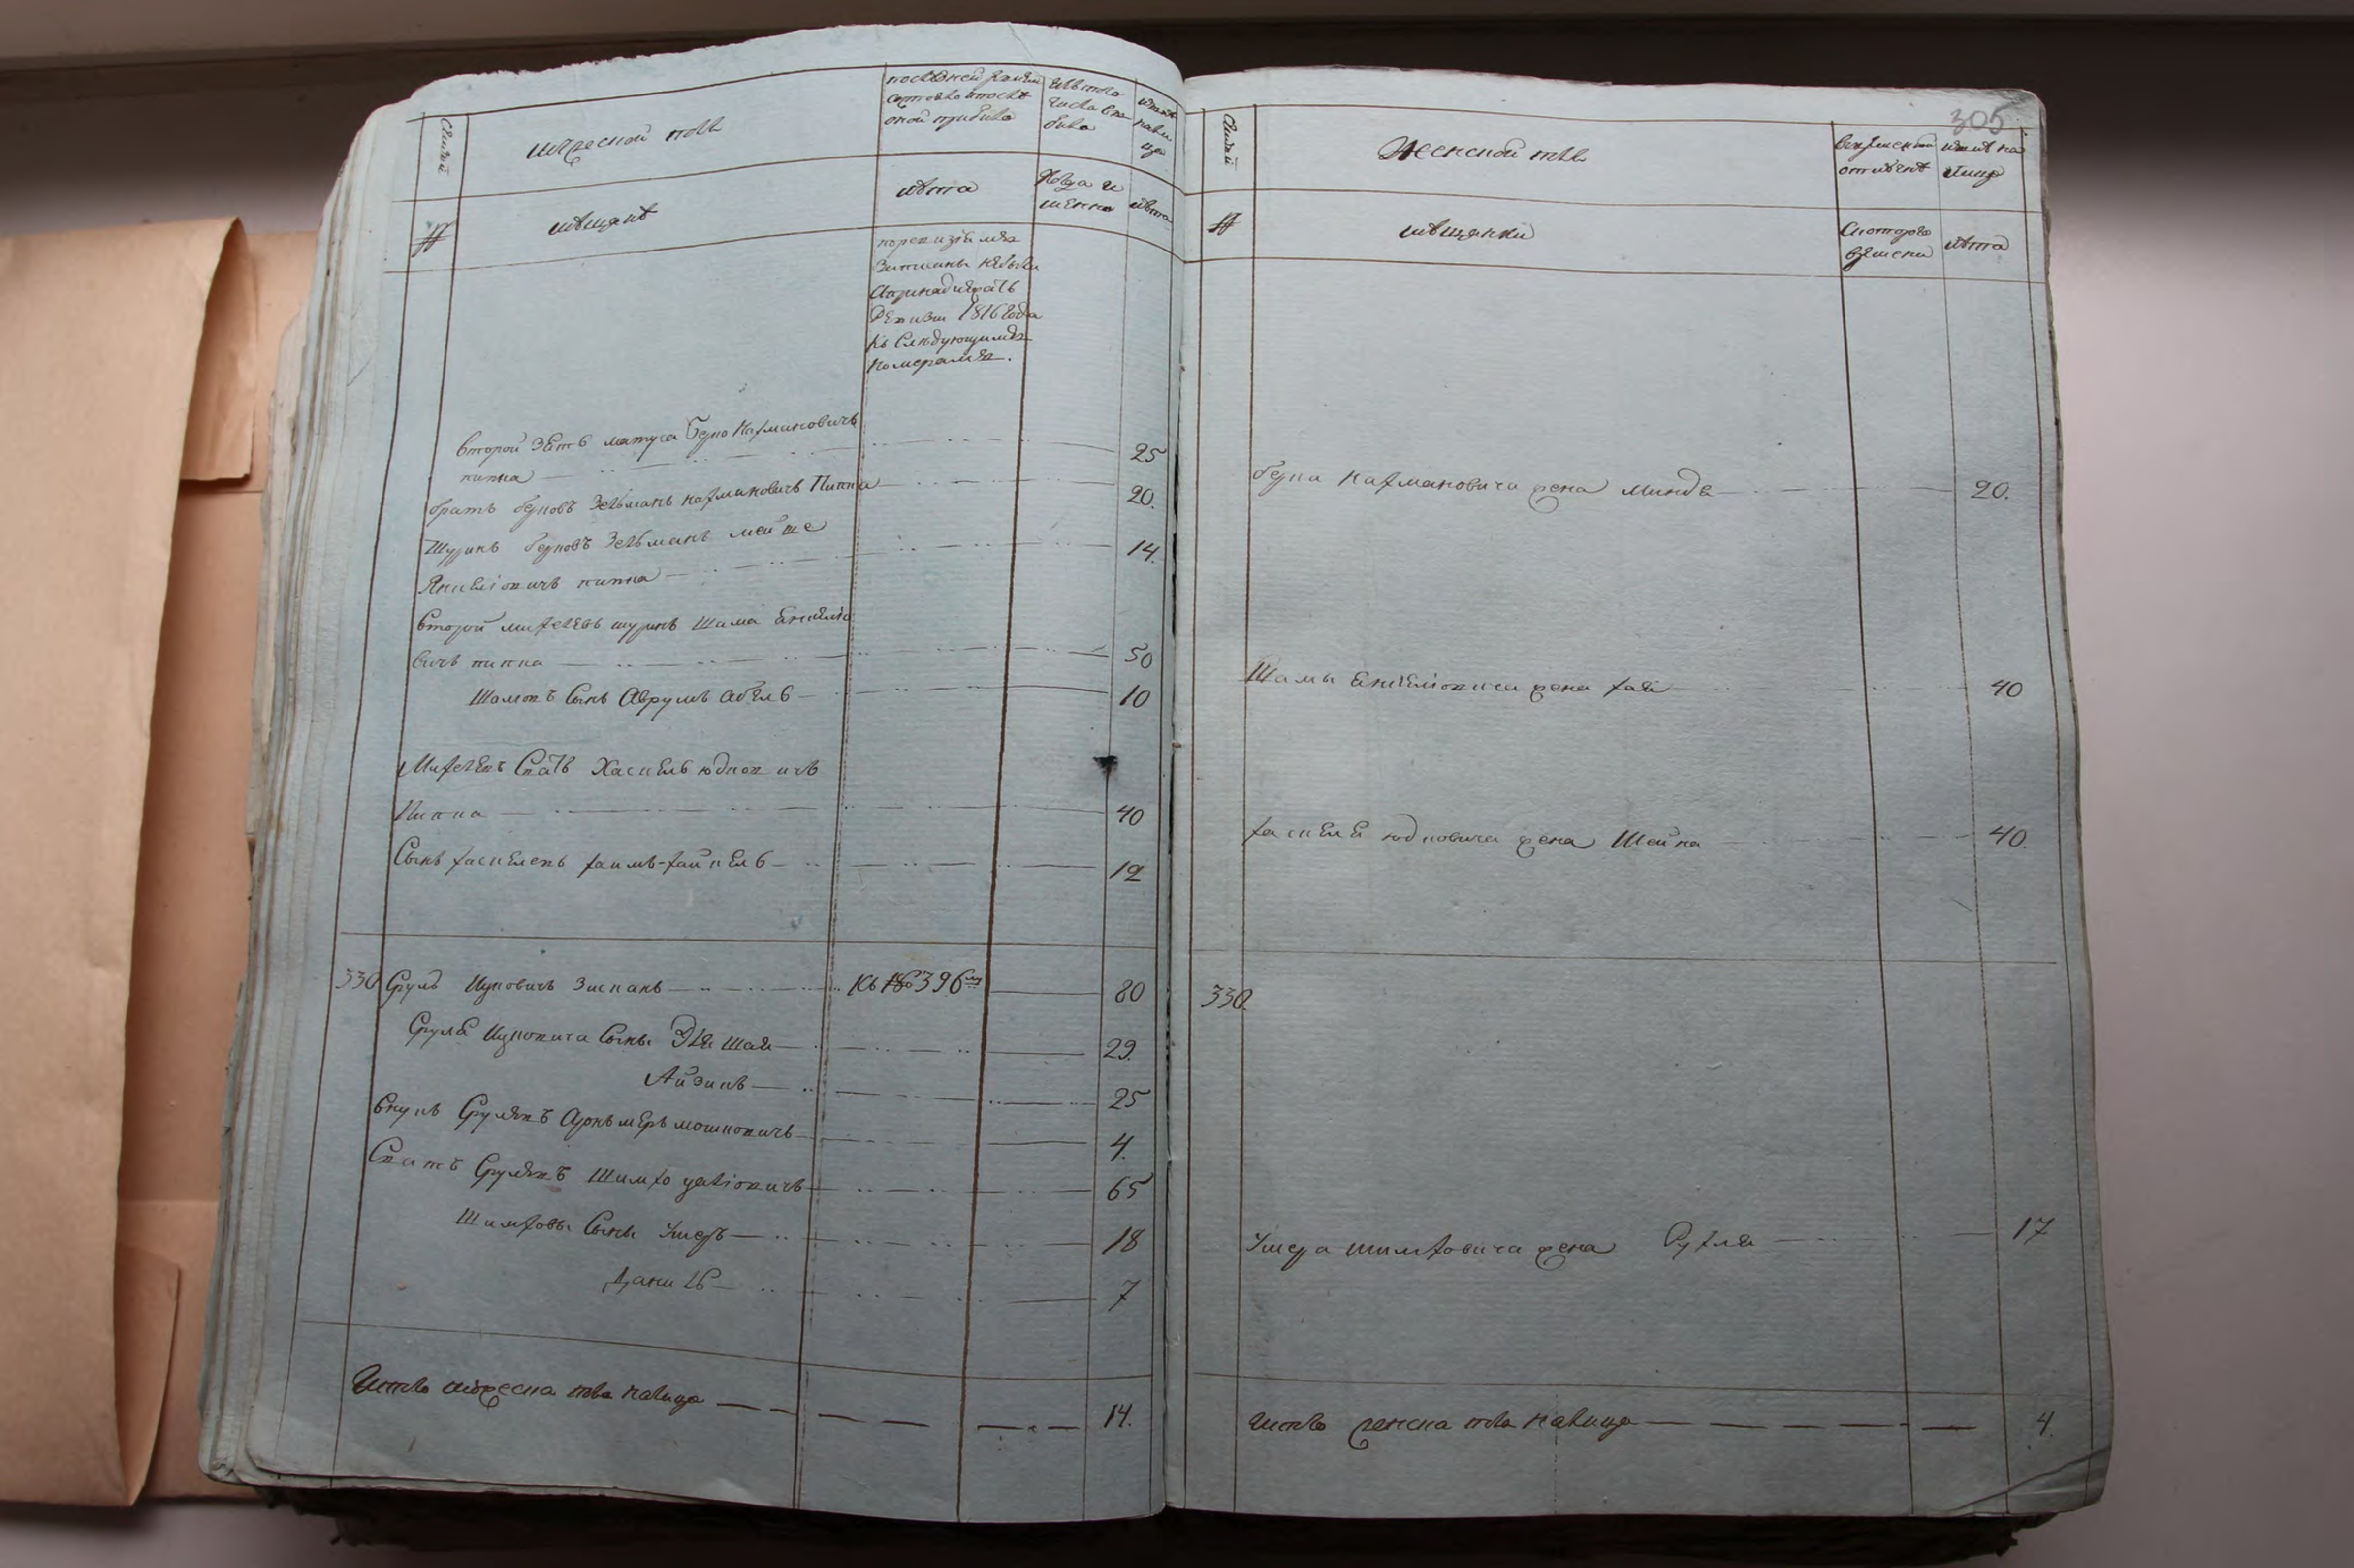 305
Семей
мужеской полъ
последней ревизи
состояло и после
оной прибыло
Изъ того
числа вы
было
ныне
на ли
цо
№
мещане
лета
Когда и
именно
лета
по ревизиямъ
записаны небыли
а принадлежатъ
Ревизии 1816 года
къ Следующимъ
номерамъ.
второй зять матуса Берко Нахмановичъ
пипка 25
братъ берковъ Зельманъ нахмановичъ Пипка 20.
Шуринъ берковъ Зельманъ мейте
Янкелiовичъ пипка 14.
Второй михелевъ шуринъ Шама Янкелiо
вичъ пипка 50
Шамовъ Сынъ Аврумъ Абель 10
Михелевъ Сватъ Хаскель юдковичъ
Пипка 40
Сынъ хаскелевъ хаимъ-хайкель 12
330 Сруль Ицковичъ Зискань Къ № 396му 80
Сруля Ицковича Сыны Эля Шая 29.
Айзикъ 25
внукъ Срулевъ Аронъ меръ мошковичъ 4.
Сватъ Срулевъ Шимхо 65
Шимховы Сыны Ушеръ 18
Даниль 7
Итого мужеска пола налицо 14.
Семей
Женской полъ
временной
отлучке
ныне на
лицо
№
мещанки
Скоторого
времени
лета
берка нахмановича жена минде 20.
Шамы Янкелiовича жена хая 40
хаскеля юдковича жена Шейна 40.
330.
Ушера шимховича жена Рухля 17
Итого женска пола налицо 4.